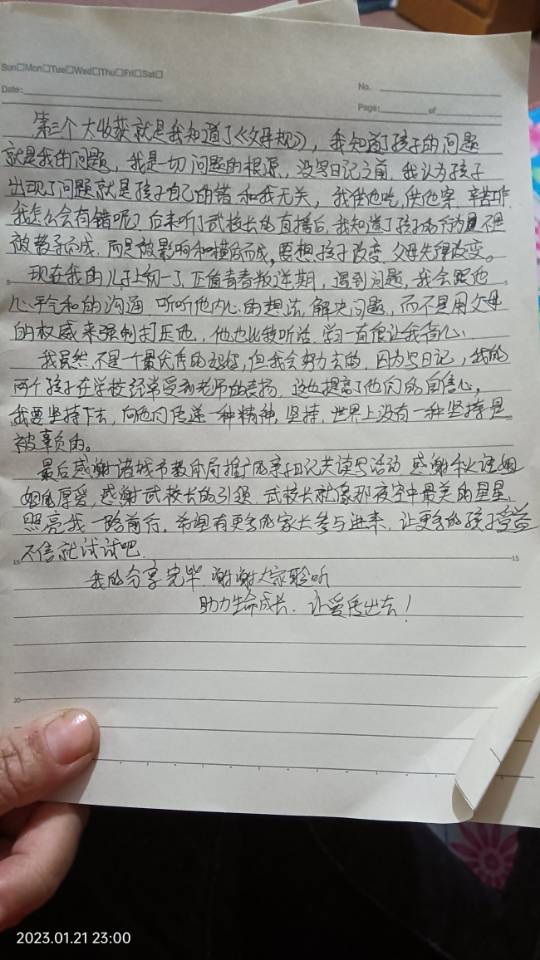 Sun□Mon□Tue□Wed□Thu□Fri□Sat□
No.
Date:
Page: of
第三个大收获就是我知道了《父母规》，我知道了孩子的问题
就是我的问题，我是一切问题的根源，没写日记之前，我认为孩子
出现了问题就是孩子自己的错和我无关，我供他吃，供他穿，辛苦
我怎么会有错呢？后来听了武校长的直播后，我知道了孩子的行为是不是
被教导而成，而是被影响和模仿而成，要想孩子改变，父母先得改变。
现在我的儿子上初一了正值青春叛逆期，遇到问题，我会跟他
心平气和的沟通，听听他内心的想法，解决问题，而不是用父母
的权威来强制打压他，他也比较听话，学习一直很让我省心
我虽然不是一个最优秀的妈妈，但我会努力去的，因为写日记，我的
两个孩子在学校经常受到老师的表扬，这也提高了他们的自信心，
我要坚持下去，向他们传递一种精神，坚持，世界上没有一种坚持是
被辜负的。
最后感谢诸城市教育局推广的亲子日记共读写活动，感谢
厚爱，感谢武校长的引领，武校长就像那夜空中最美的星星
照亮我一路前行，希望有更多的家长参与进来，让更多的孩子受益
不信就试试吧
15
15
我的分享完毕 谢谢大家聆听
助力生命成长，让爱传出去！
20
2023.01.21 23:00